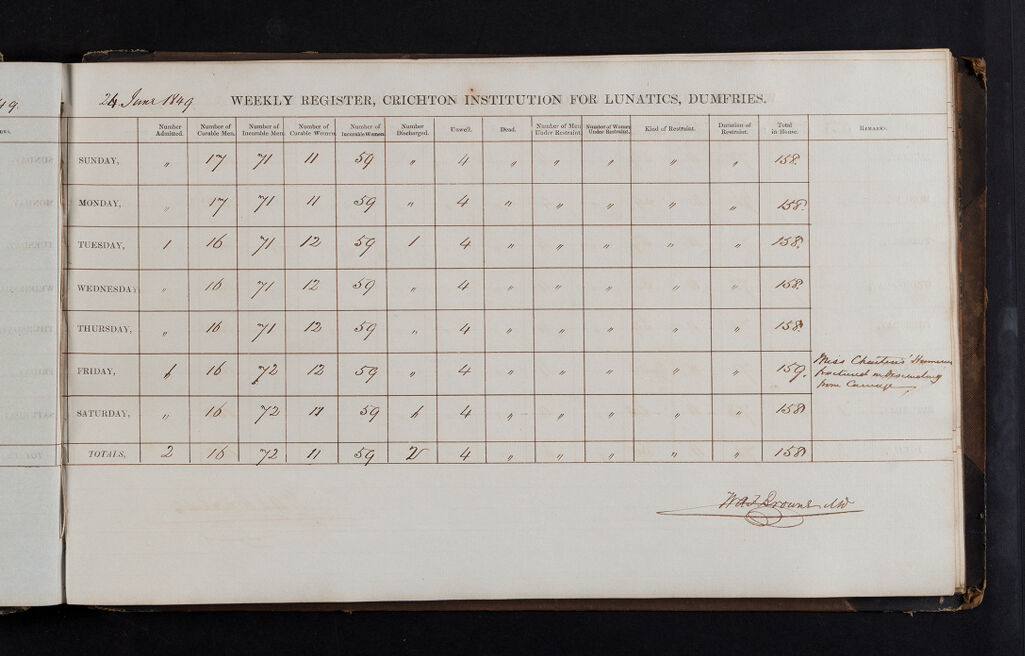 24 June 1849
WEEKLY REGISTER, CRICHTON INSTITUTION FOR LUNATICS, DUMFRIES.
Number Admitted. Number of Curable Men. Number of Incurable Men. Number of Curable Women. Number of Incurable Women. Number Discharged. Unwell. Dead. Number of Men Under Restraint. Number of Women Under Restraint. Kind of Restraint. Duration of Restraint. Total in House. Remarks.
SUNDAY, " 17 71 11 59 " 4 " " " " " 158.
MONDAY, " 17 71 11 59 " 4 " " " " " 158.
TUESDAY, 1 16 71 12 59 1 4 " " " " " 158.
WEDNESDAY " 16 71 12 59 " 4 " " " " " 158.
THURSDAY, " 16 71 12 59 " 4 " " " " " 158.
FRIDAY, 1 16 72 12 59 " 4 " " " " " 159. Miss Charteris' Humerus
fractured on descending
from Carriage
SATURDAY, " 16 72 11 59 1 4 " " " " " 158
TOTALS, 2 16 72 11 59 2 4 " " " " " 158
WAF Browne MD